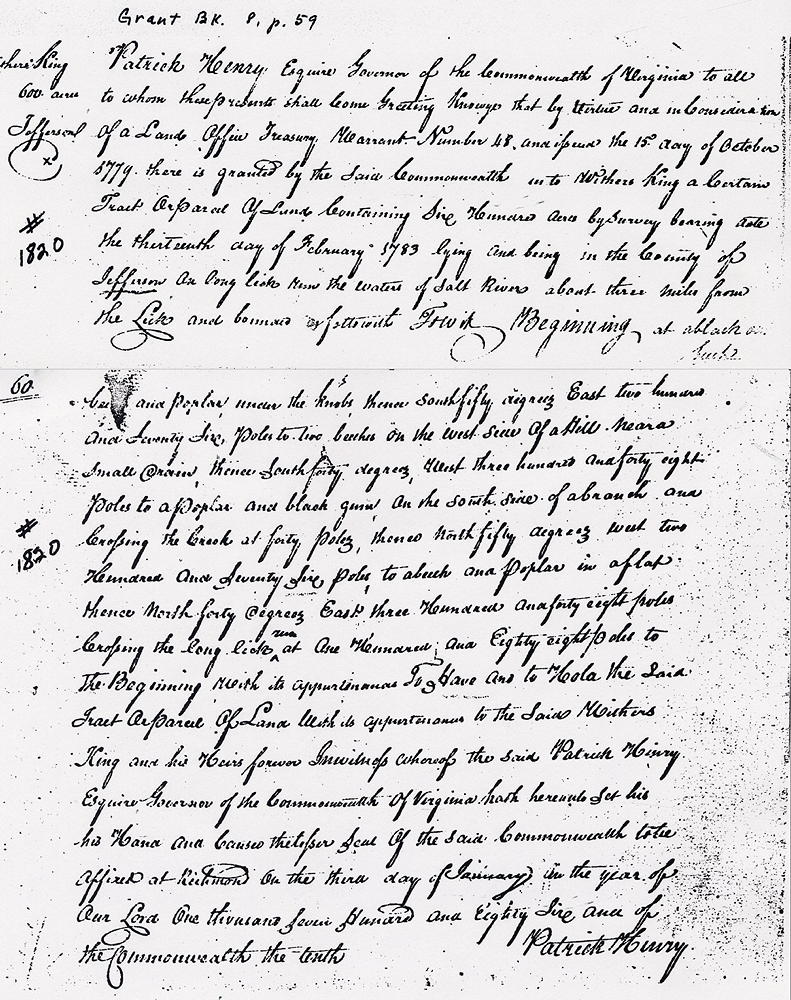 Grant BK. 8, p. 59
Withers King
600 acres
Jefferson
#
1820
Patrick Henry Esquire Governor of the Commonwealth of Virginia to all
to whom these presents shall Come Greeting Knowye that by Virtue and in Consideration
of a Land Office Treasury Warrant Number 48, and issued the 15 day of October
1779. there is granted by the Said Commonwealth unto Withers King a Certain
Tract Or Parcel Of Land Containing Six Hundred acres by Survey bearing date
the thirteenth day of February 1783 lying and being in the County of
Jefferson On Long lick run the waters of Salt River about three miles from
the Lick and bounded as followeth Towit Beginning at a black
60
and Poplar under the knobs thence South fifty degrees East two hundred
and Seventy Six Poles to two beeches on the West Side Of a Hill near a
Small Drain, thence South forty degrees, West three hundred and forty eight
Poles to a Poplar and black gum On the South side of a branch and
#
1820
Crossing the Creek at forty Poles, thence North fifty degrees West two
Hundred And Seventy Six Poles to a beech and Poplar in a flat
thence North forty Degrees East three Hundred and forty eight poles
Crossing the long lick run at One Hundred and Eighty eight Poles to
the Beginning With its appurtenances To Have And to Hold the Said
Tract Or Parcel Of Land With its appurtenances to the Said Withers
King and his Heirs forever In witness whereof the said Patrick Henry
Esquire Governor of the Commonwealth Of Virginia hath hereunto Set his
his Hand and Caused the lesser Seal Of the said Commonwealth to be
Affixed at Richmond On the third day of January in the year of
Our Lord One thousand Seven Hundred and Eighty Six and of
the Commonwealth the tenth
Patrick Henry